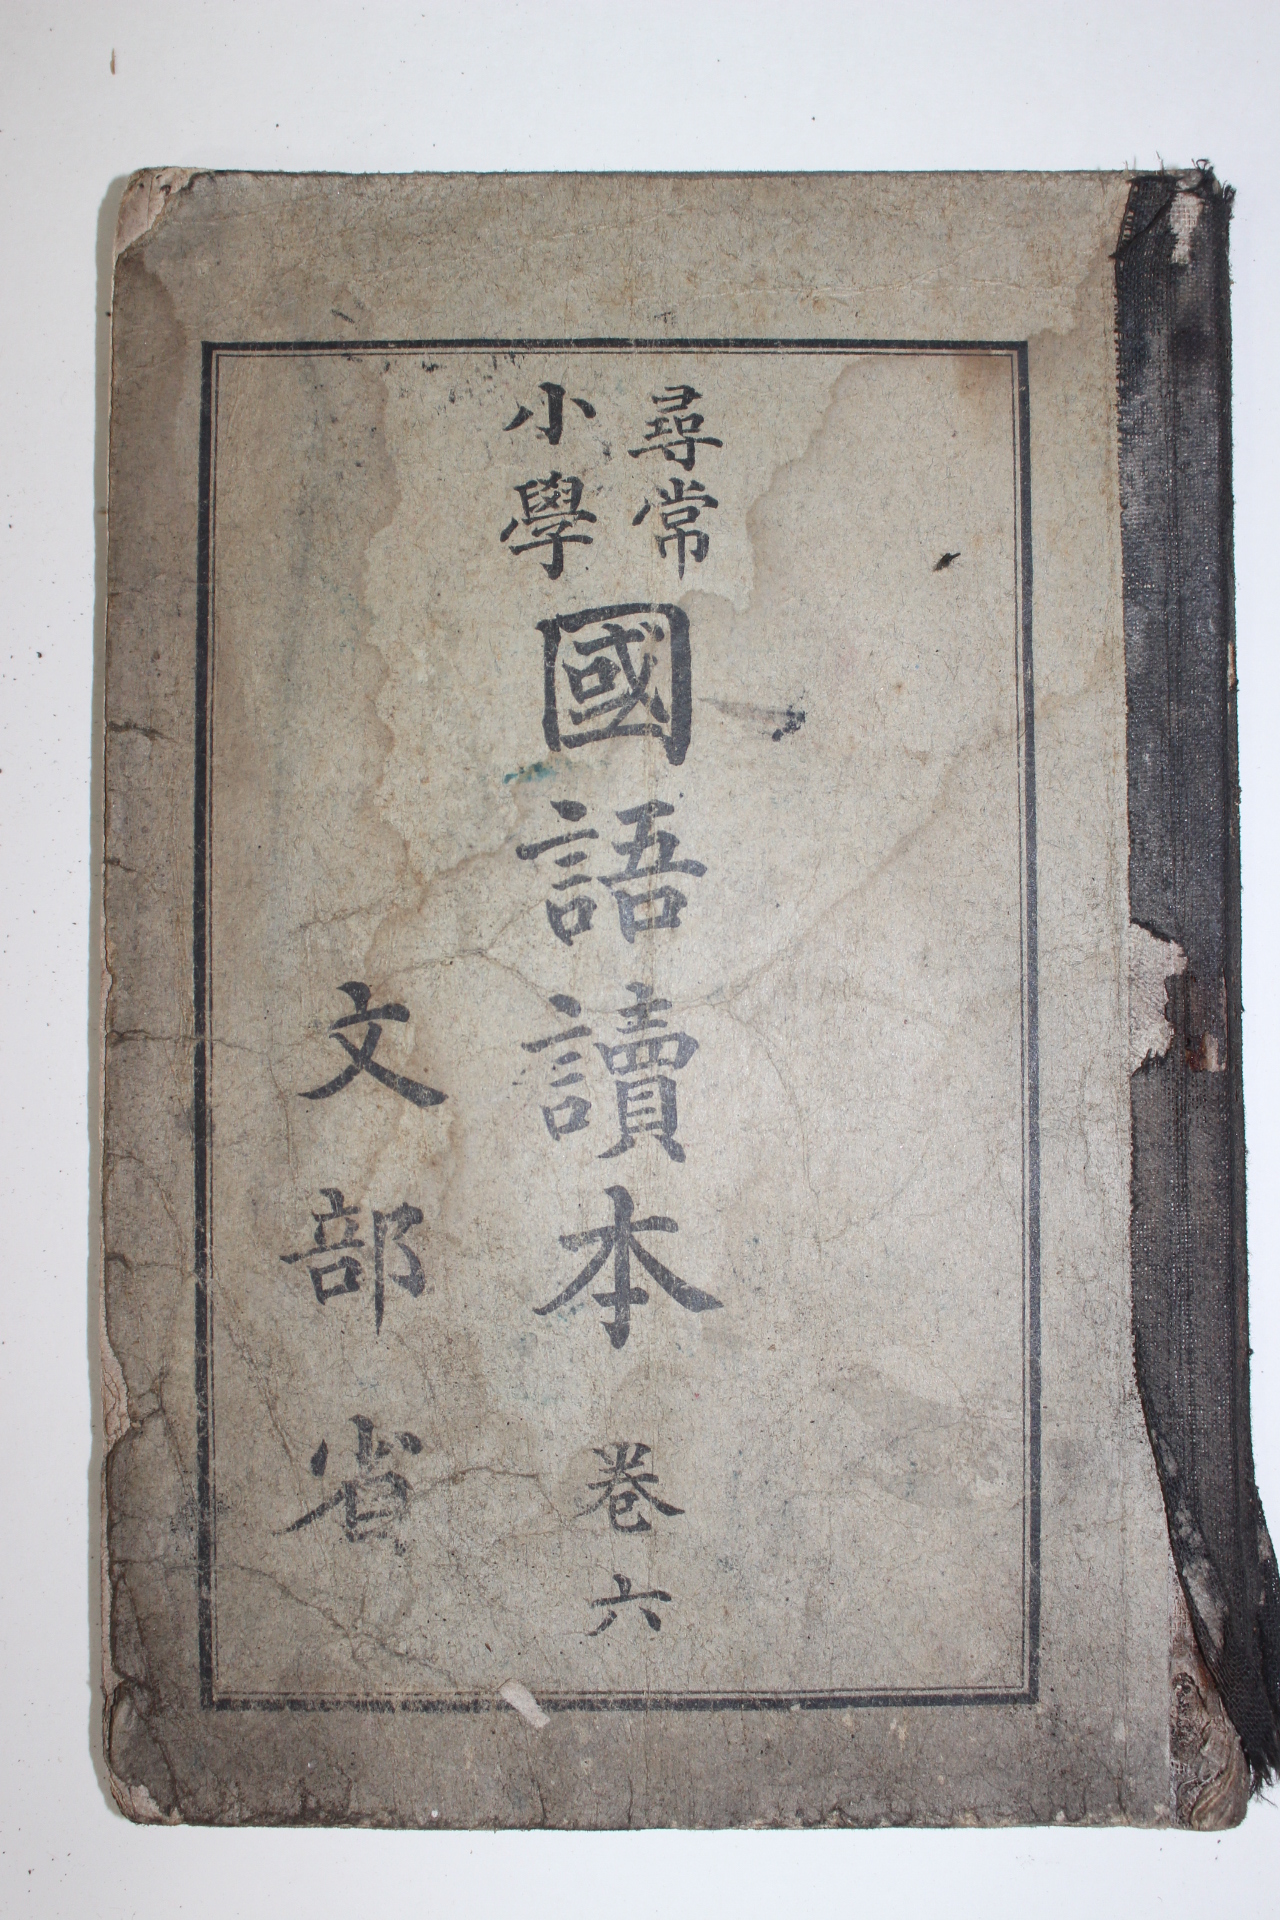 尋常
小學
國語讀本 卷六
文部省